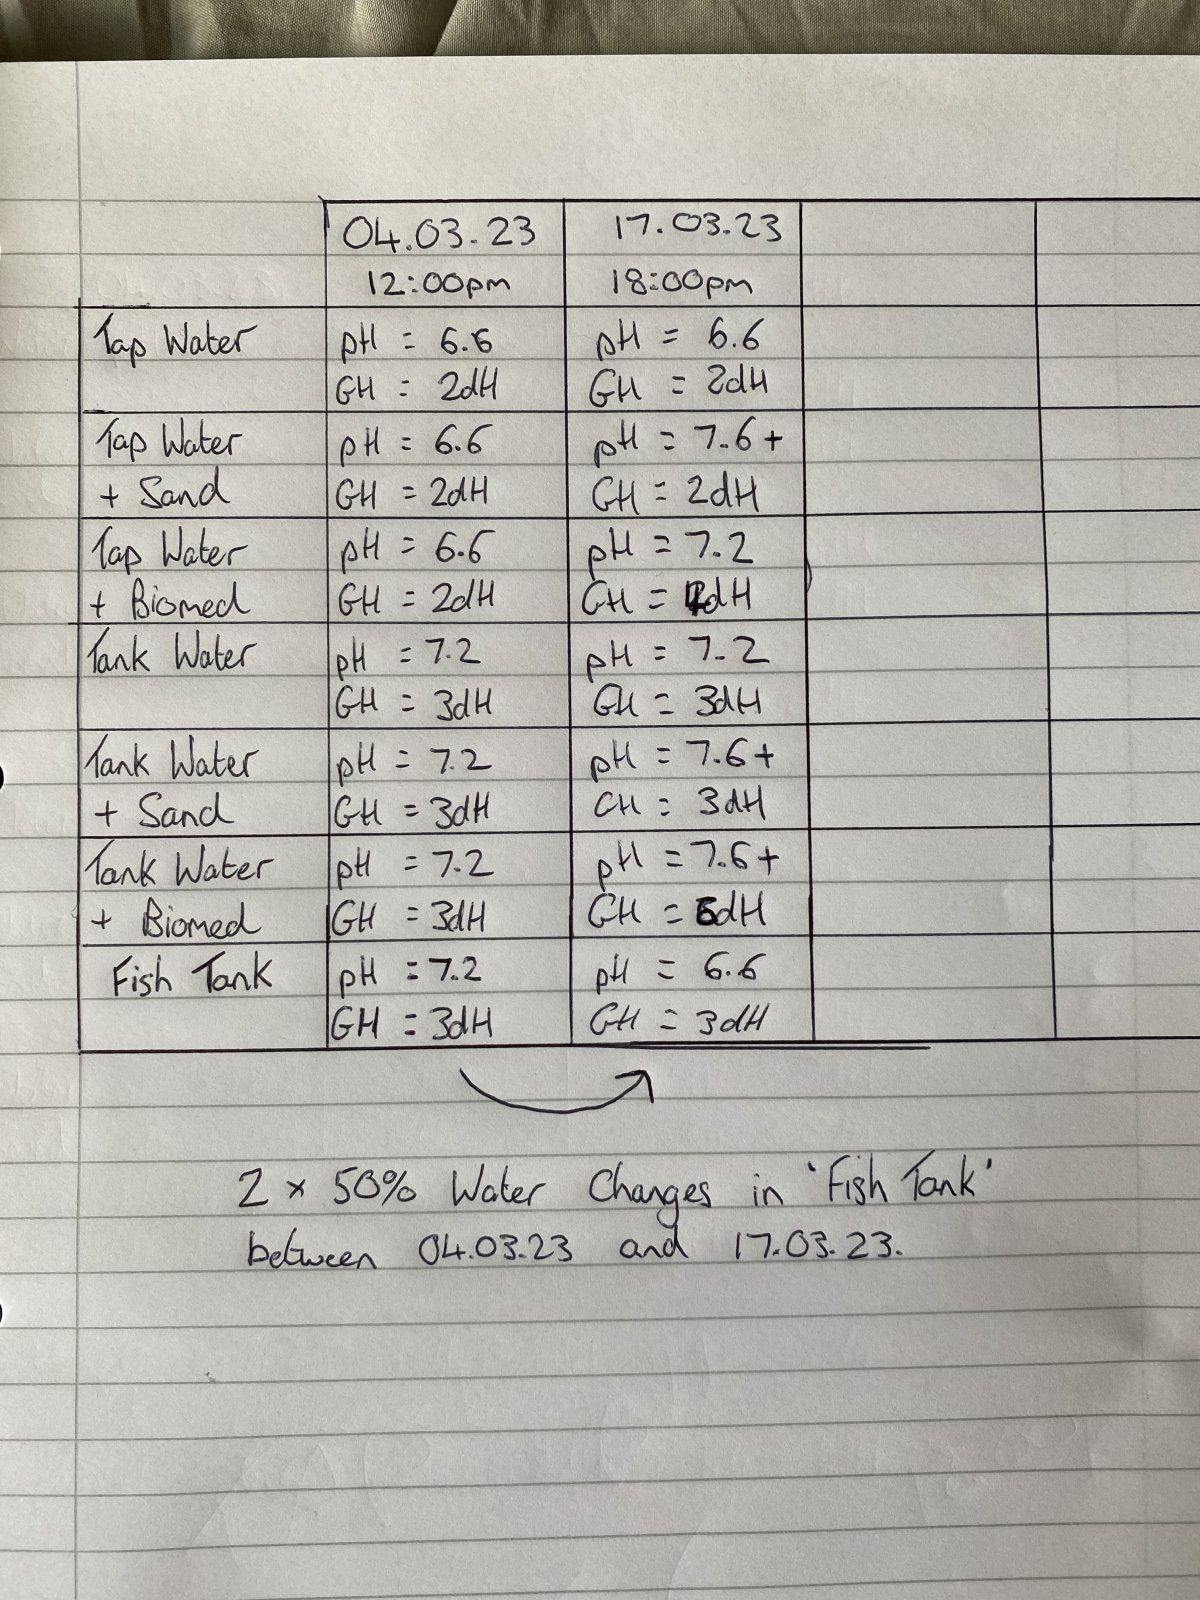 04.03.23 17.03.23
12:00pm 18:00pm
Tap Water pH = 6.6 pH = 6.6
GH = 2dH GH = 2dH
Tap Water pH = 6.6 pH = 7.6+
+ Sand GH = 2dH GH = 2dH
Tap Water pH = 6.6 pH = 7.2
+ Biomed GH = 2dH GH =
Tank Water pH = 7.2 pH = 7.2
GH = 3dH GH = 3dH
Tank Water pH = 7.2 pH = 7.6+
+ Sand GH = 3dH GH = 3dH
Tank Water pH = 7.2 pH = 7.6+
+ Biomed GH = 3dH GH =
Fish Tank pH = 7.2 pH = 6.6
GH = 3dH GH = 3dH
2 x 50% Water Changes in 'Fish Tank'
between 04.03.23 and 17.03.23.